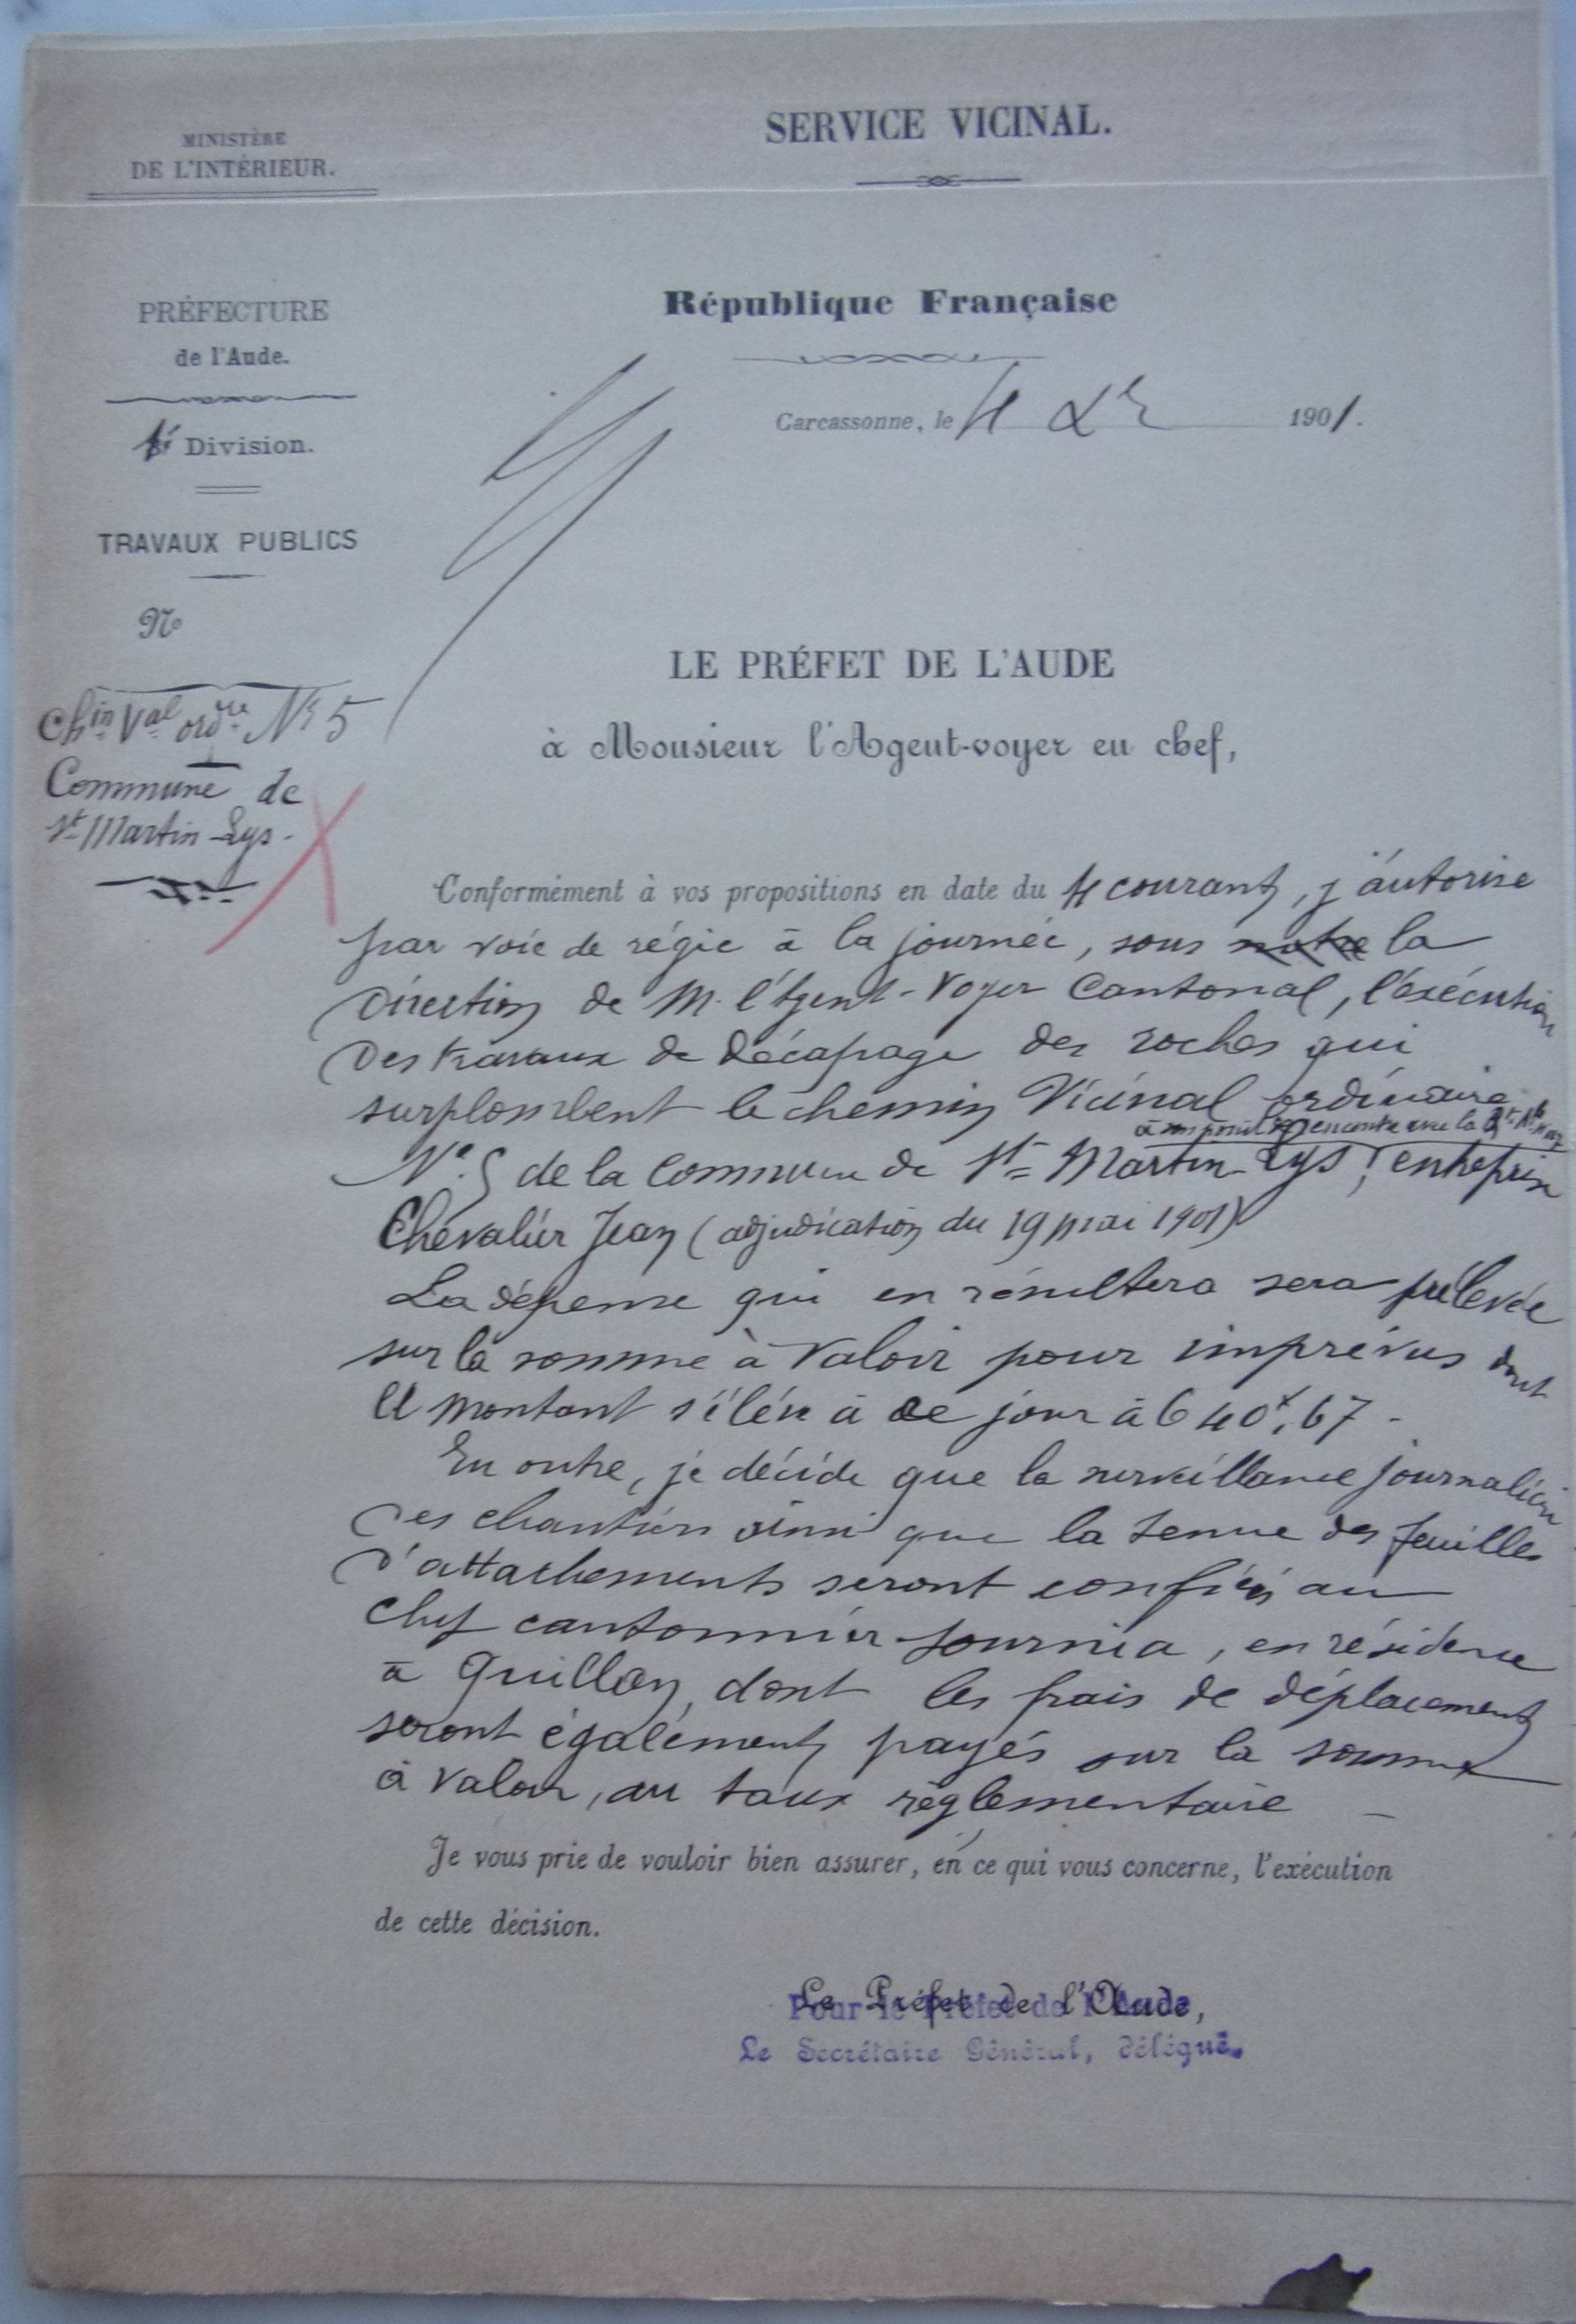 MINISTÈRE
DE L'INTÉRIEUR.
SERVICE VICINAL.
PRÉFECTURE
de l'Aude.
Division.
TRAVAUX PUBLICS
No
Chin Val ordre No 5
Commune de
St Martin-Lys.
République Française
Carcassonne, le 4 Xre 1901.
LE PRÉFET DE L'AUDE
à Monsieur l'Agent-voyer en chef,
Conformément à vos propositions en date du 4 courant, j'autorise
par voie de régie à la journée, sous notre la
direction de M. l'Agent-Voyer Cantonal, l'exécution
des travaux de décapage des roches qui
surplombent le chemin Vicinal ordinaire
à son point de rencontre avec la
No. 5 de la Commune de St Martin-Lys, entreprise
Chevalier Jean (adjudication du 19 mai 1901)
La dépense qui en résultera sera prélevée
sur la somme à valoir pour imprévus dont
le montant s'élève à ce jour à 640f,67.
En outre, je décide que la surveillance journalière
des chantiers ainsi que la tenue des feuilles
d'attachements seront confiés au
chef cantonnier Journia, en résidence
à Quillan, dont les frais de déplacement
seront également payés sur la somme
à valoir, au taux règlementaire
Je vous prie de vouloir bien assurer, en ce qui vous concerne, l'exécution
de cette décision.
Le Préfet de l'Aude,
Pour le Préfet de l'Aude
Le Secrétaire Général, délégué.